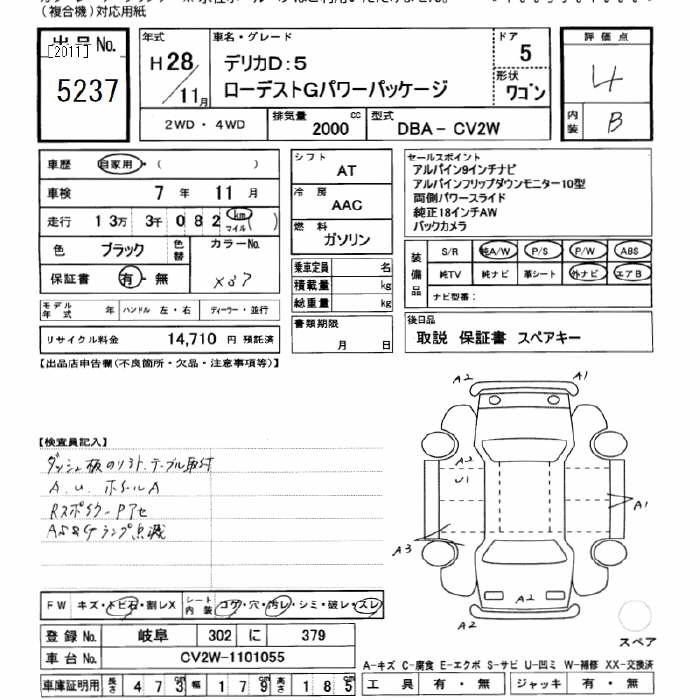 (複合機)対応用紙
出品 No.
[2011]
5237
年式
H28/11月
車名・グレード
デリカD:5
ローデストGパワーパッケージ
ドア
5
形状
ワゴン
評価点
4
内装
B
2WD・4WD
排気量
2000 cc
型式
DBA- CV2W
車歴 自家用・( )
車検 7 年 11 月
走行 13万 3千 082 km マイル ( )
色 ブラック 色替 カラーNo.
X37
保証書 有・無
モデル年式 年 ハンドル 左・右 ディーラー・並行
リサイクル料金 14,710 円 預託済
シフト
AT
冷房
AAC
燃料
ガソリン
乗車定員 名
積載量 kg
総重量 kg
書類期限
月 日
セールスポイント
アルパイン9インチナビ
アルパインフリップダウンモニター10型
両側パワースライド
純正18インチAW
バックカメラ
装備品
S/R 純A/W P/S P/W ABS
純TV 純ナビ 革シート 外ナビ エアB
ナビ型番:
後日品
取説 保証書 スペアキー
【出品店申告欄(不良箇所・欠品・注意事項等)】
【検査員記入】
ダッシュ板のソリト、テーブル取付
A.U. ホイールA
RスポイラーPアセ
AS&Gランプ点滅
A2
A1
A2
U1
A1
A3
A2
A2
スペア
FW キズ・トビ石・割レX シート内装 コゲ・穴・汚レ・シミ・破レ・スレ
登録 No. 岐阜 302 に 379
車台 No. CV2W-1101055
車庫証明用 長さ 473 幅 179 高さ 185
A-キズ C-腐食 E-エクボ S-サビ U-凹ミ W-補修 XX-交換済
工具 有・無 ジャッキ 有・無